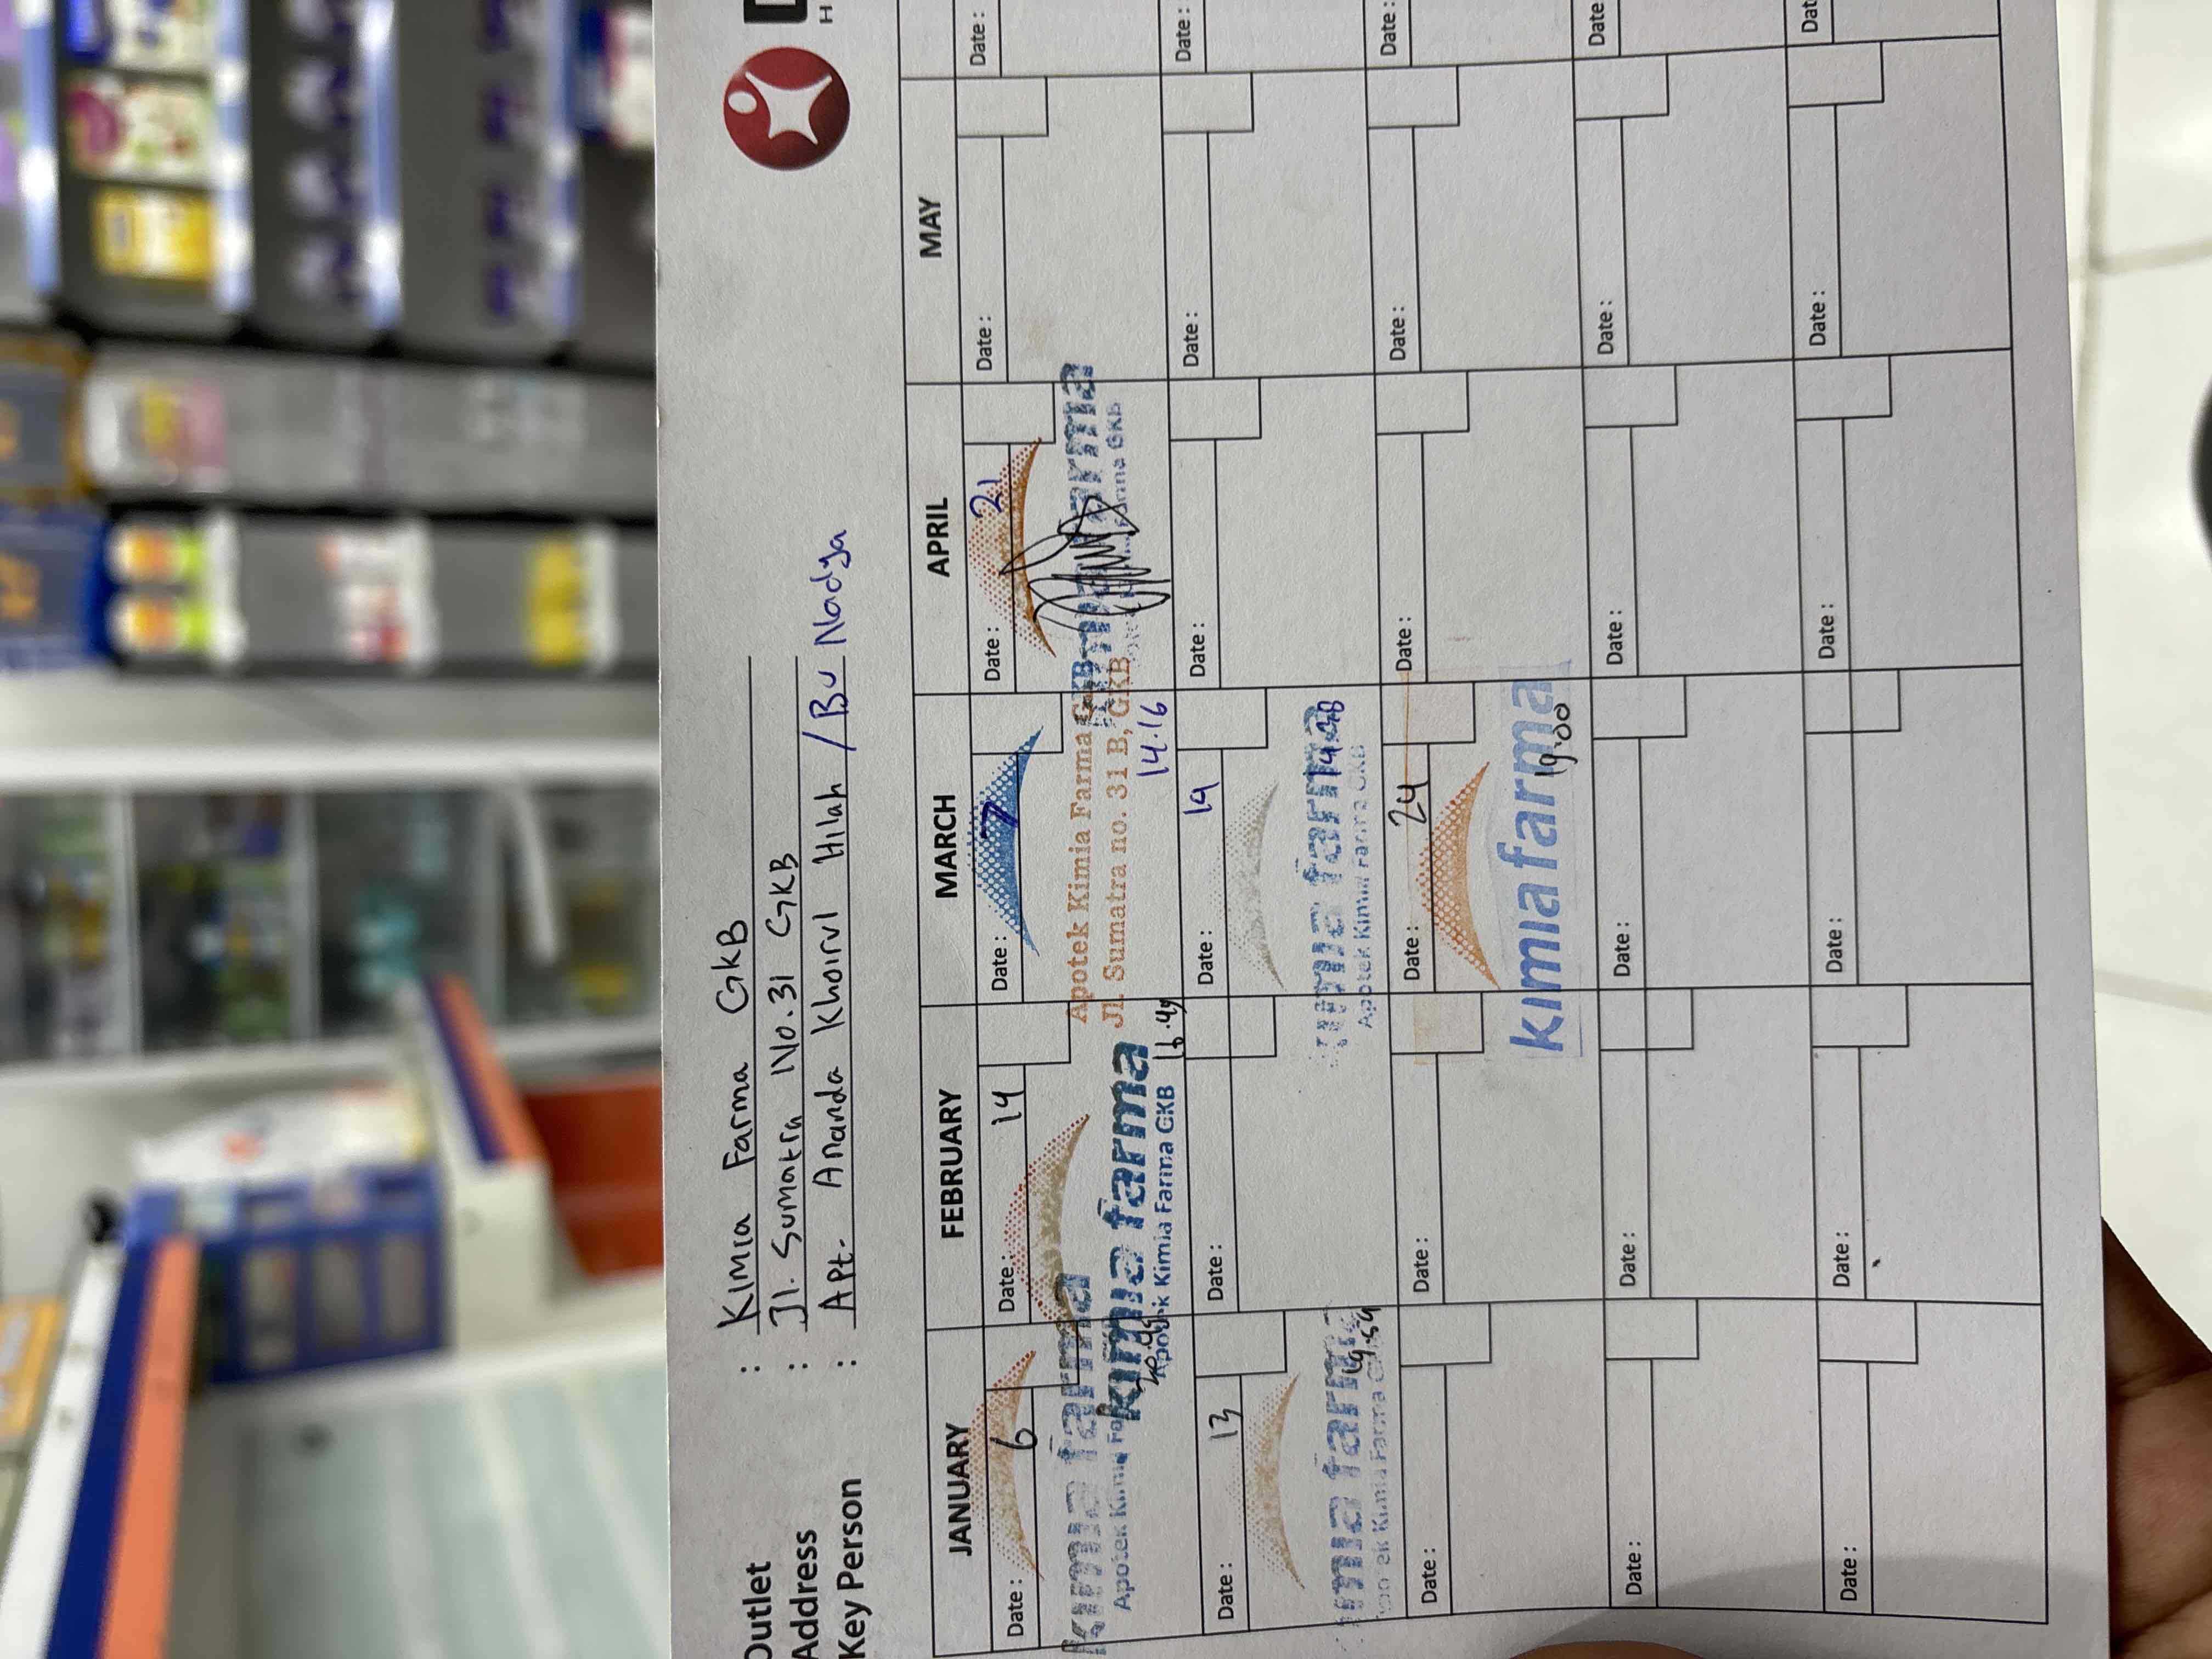 Outlet : Kimia Farma GKB
Address : Jl. Sumatra No. 31 GKB
Key Person : Apt. Ananda Khoirul Hilah / Bu Nadya
H
JANUARY FEBRUARY MARCH APRIL MAY
Date : 6 Date : 14 Date : 7 Date : 21 Date : Date :
kimia farma
kimia farma
Apotek Kimia Farma GKB
16.49
Apotek Kimia Farma GKB
Jl. Sumatra no. 31 B, GKB
14.16
farma
Farma GKB
Date : 13 Date : Date : 19 Date : Date : Date :
kimia farma
19.59
kimia farma
Apotek Kimia Farma GKB
Date : Date : Date : 24 Date : Date : Date :
kimia farma
19.00
Date : Date : Date : Date : Date : Date
Date : Date : Date : Date : Date : Dat